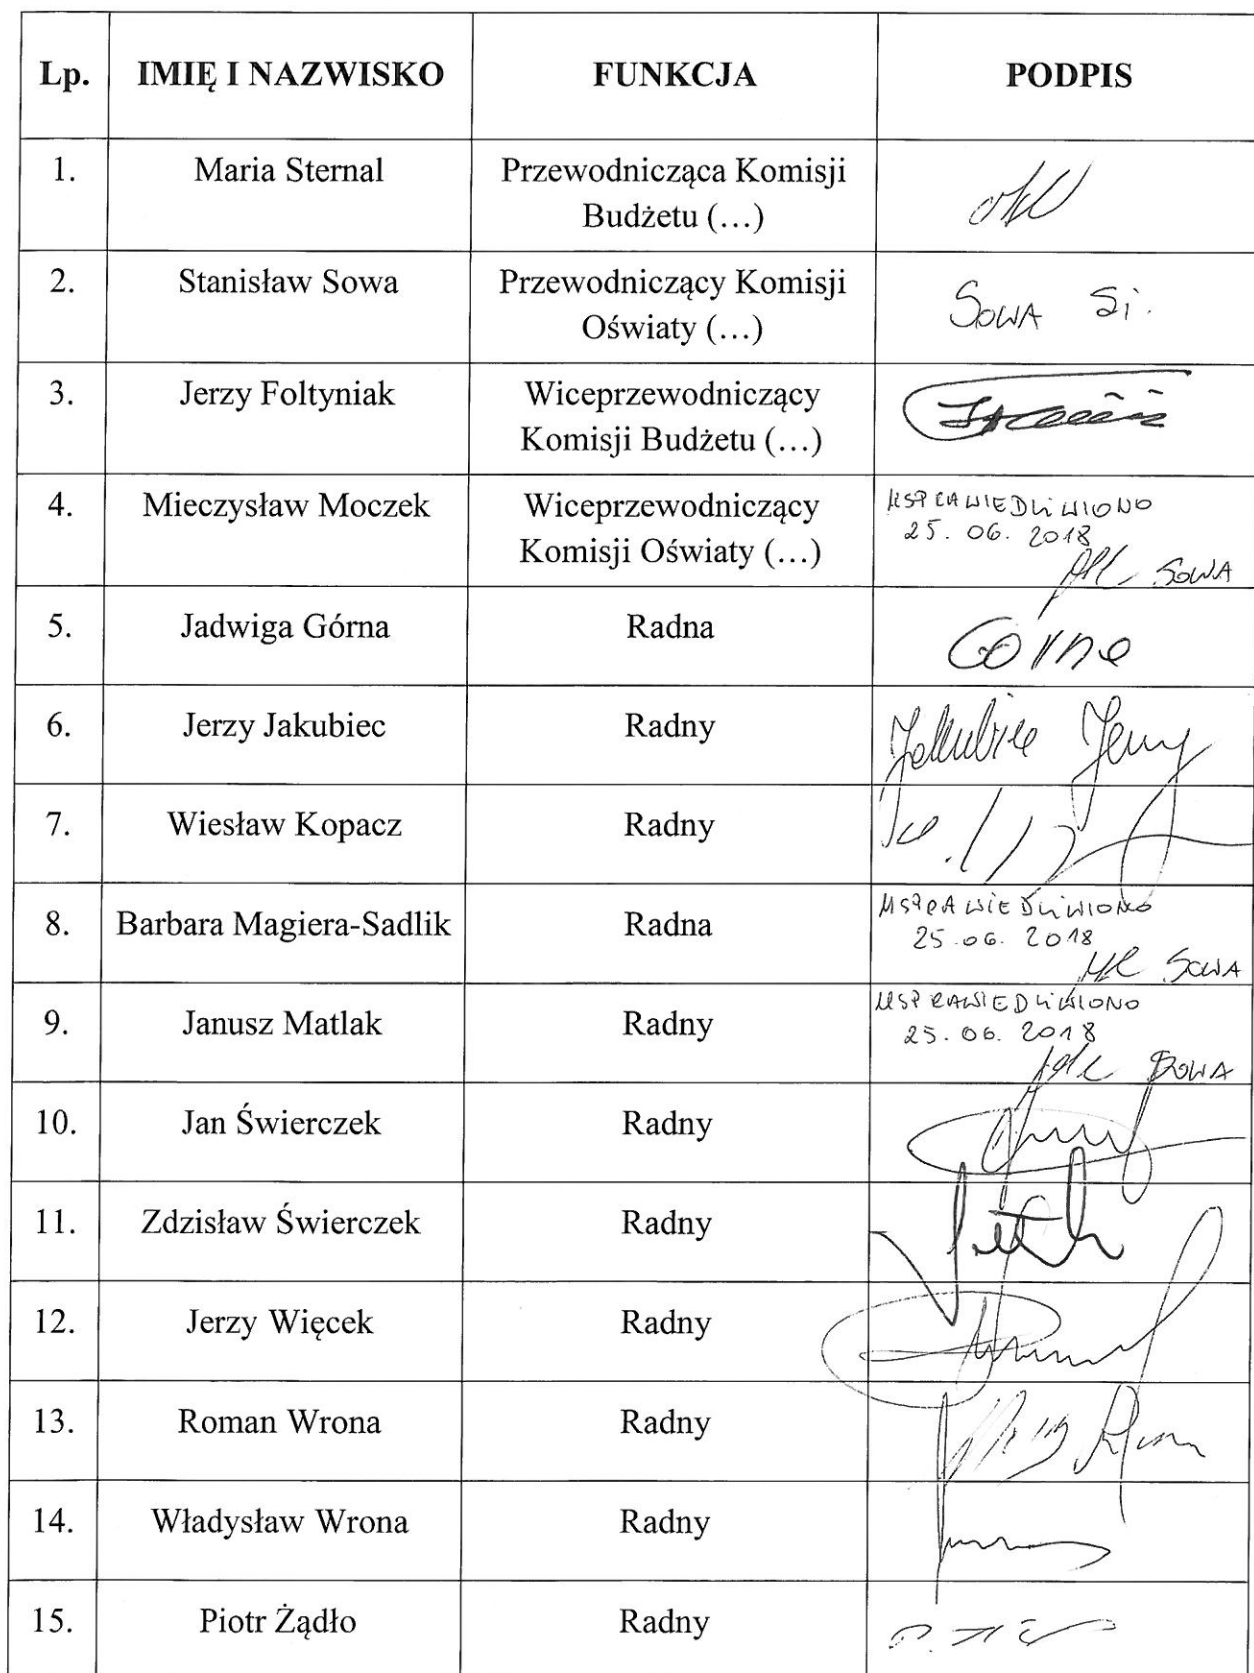 Lp. IMIĘ I NAZWISKO FUNKCJA PODPIS
1. Maria Sternal Przewodnicząca Komisji
Budżetu (…)
2. Stanisław Sowa Przewodniczący Komisji
Oświaty (…) SOWA St.
3. Jerzy Foltyniak Wiceprzewodniczący
Komisji Budżetu (…)
4. Mieczysław Moczek Wiceprzewodniczący USPRAWIEDLIWIONO
Komisji Oświaty (…) 25.06.2018
SOWA
5. Jadwiga Górna Radna Górna
6. Jerzy Jakubiec Radny Jakubiec Jerzy
7. Wiesław Kopacz Radny
8. Barbara Magiera-Sadlik Radna USPRAWIEDLIWIONO
25.06.2018
SOWA
9. Janusz Matlak Radny USPRAWIEDLIWIONO
25.06.2018
SOWA
10. Jan Świerczek Radny
11. Zdzisław Świerczek Radny
12. Jerzy Więcek Radny
13. Roman Wrona Radny
14. Władysław Wrona Radny
15. Piotr Żądło Radny